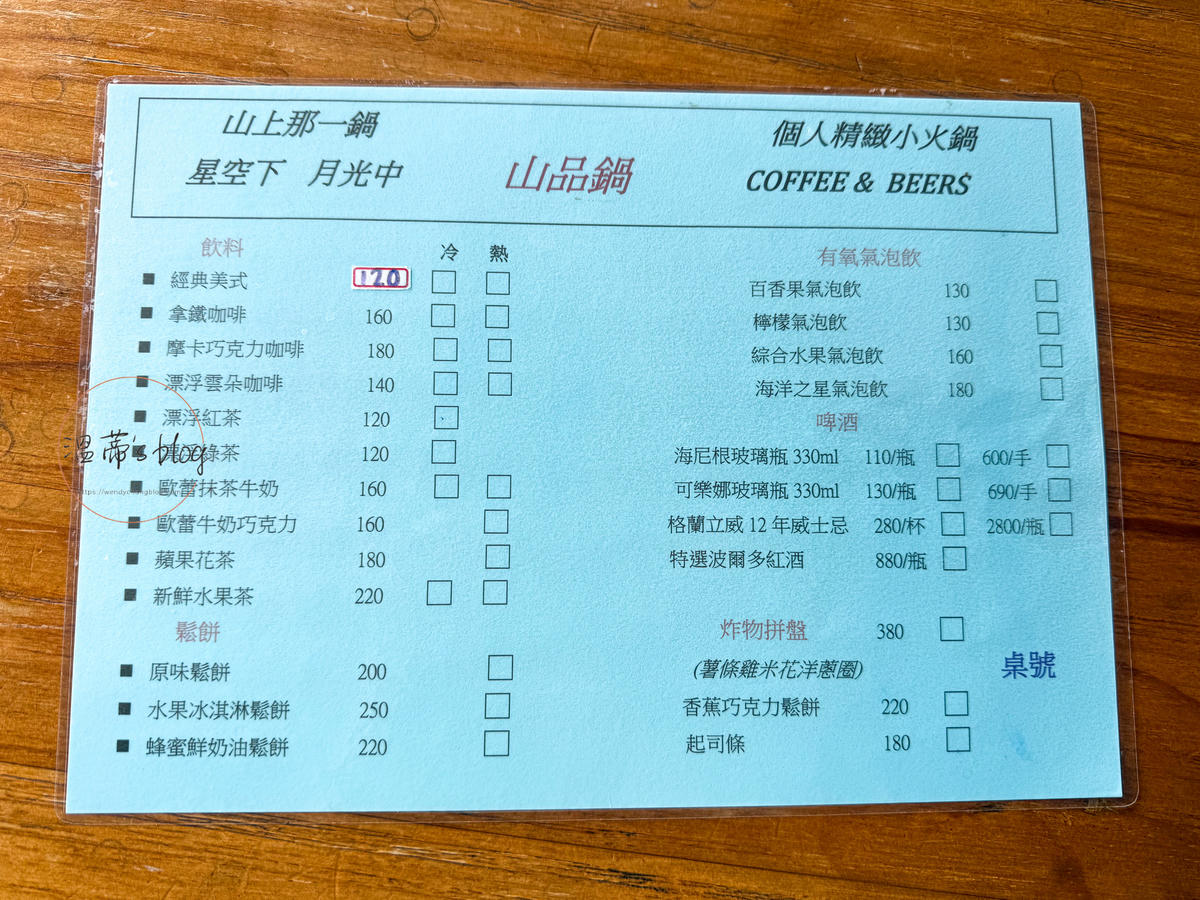 山上那一鍋
星空下 月光中
山品鍋
個人精緻小火鍋
COFFEE & BEERS
飲料 冷 熱
■ 經典美式 120 □ □
■ 拿鐵咖啡 160 □ □
■ 摩卡巧克力咖啡 180 □ □
■ 漂浮雲朵咖啡 140 □ □
■ 漂浮紅茶 120 □
綠茶 120 □
■ 歐蕾抹茶牛奶 160 □ □
■ 歐蕾牛奶巧克力 160 □
■ 蘋果花茶 180 □
■ 新鮮水果茶 220 □ □
鬆餅
■ 原味鬆餅 200 □
■ 水果冰淇淋鬆餅 250 □
■ 蜂蜜鮮奶油鬆餅 220 □
有氧氣泡飲
百香果氣泡飲 130 □
檸檬氣泡飲 130 □
綜合水果氣泡飲 160 □
海洋之星氣泡飲 180 □
啤酒
海尼根玻璃瓶 330ml 110/瓶 □ 600/手 □
可樂娜玻璃瓶 330ml 130/瓶 □ 690/手 □
格蘭立威 12 年威士忌 280/杯 □ 2800/瓶 □
特選波爾多紅酒 880/瓶 □
炸物拼盤 380 □
(薯條雞米花洋蔥圈)
香蕉巧克力鬆餅 220 □
起司條 180 □
桌號
溫蒂's blog